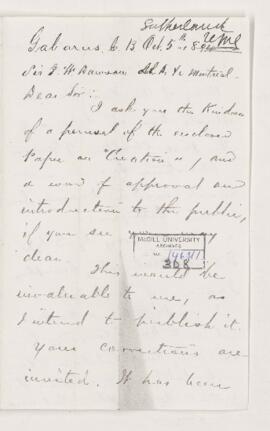 Sutherland
Gabarus, C. B Oct. 5th 89
Sir J. W. Dawson LL. D. &c Montreal
Dear Sir:
I ask you the kindness
of a perusal of the enclosed
Paper on "Creation", and
a word of approval and
introduction to the public,
if you see your way
clear.
McGILL UNIVERSITY
ARCHIVES
308
This would be
invaluable to me, as
I intend to publish it.
Your corrections are
invited. It has been